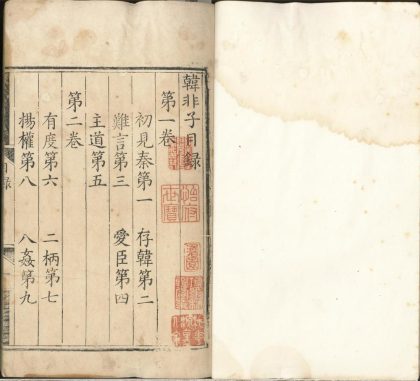 韓非子目録
第一卷
初見秦第一 存韓第二
難言第三 愛臣第四
主道第五
第二卷
有度第六 二柄第七
楊權第八 八姦第九
目録